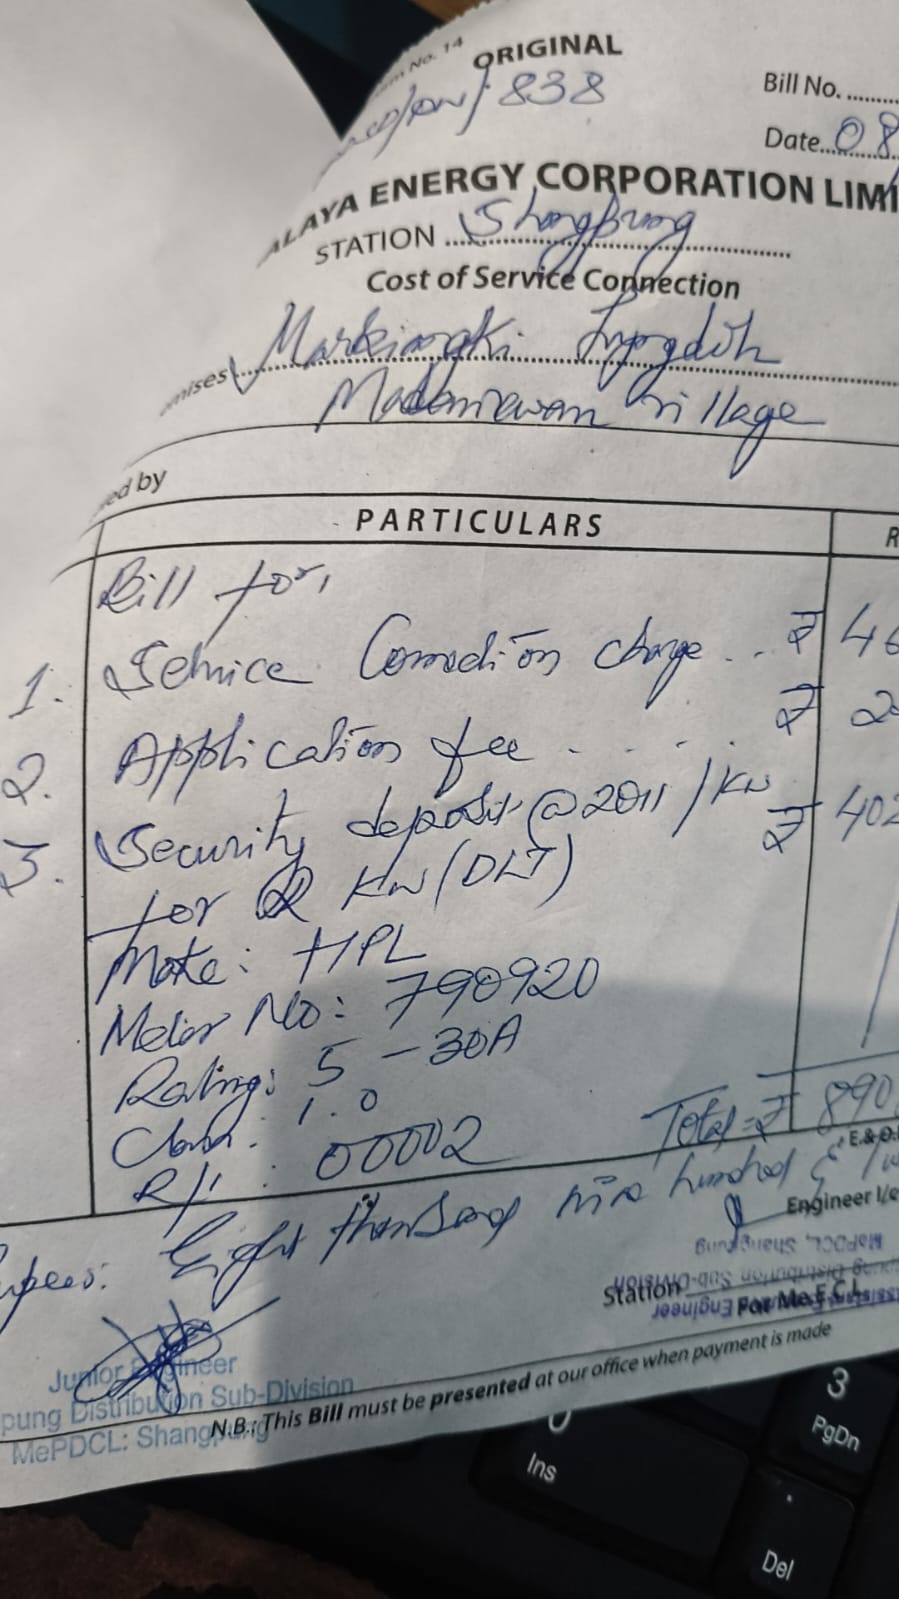 Form No. 14 ORIGINAL
838
Bill No. ..........
Date...08
ALAYA ENERGY CORPORATION LIMI
STATION ... Shangpung
Cost of Service Connection
mises Markiangki Lyngdoh
village
ed by
PARTICULARS R
Bill for,
1. Service Connection charge ... ₹ 46
2. Application fee ..... ₹ 2
3. Security deposit @ 2011/KW ₹ 402
for 2 KW (DLT)
Make: HPL
Meter No: 790920
Rating: 5 - 30A
Class: 1.0
R/1: 00002
Total = ₹ 890
E.&O.
upees: Eight thousand nine hundred &
Engineer I/c
MePDCL, Shangpung
Distribution Sub-Division
Station
For Me.E.C.L.
Engineer
Junior Engineer
pung Distribution Sub-Division
MePDCL: Shangpung
N.B.: This Bill must be presented at our office when payment is made
3
PgDn
0
Ins
.
Del